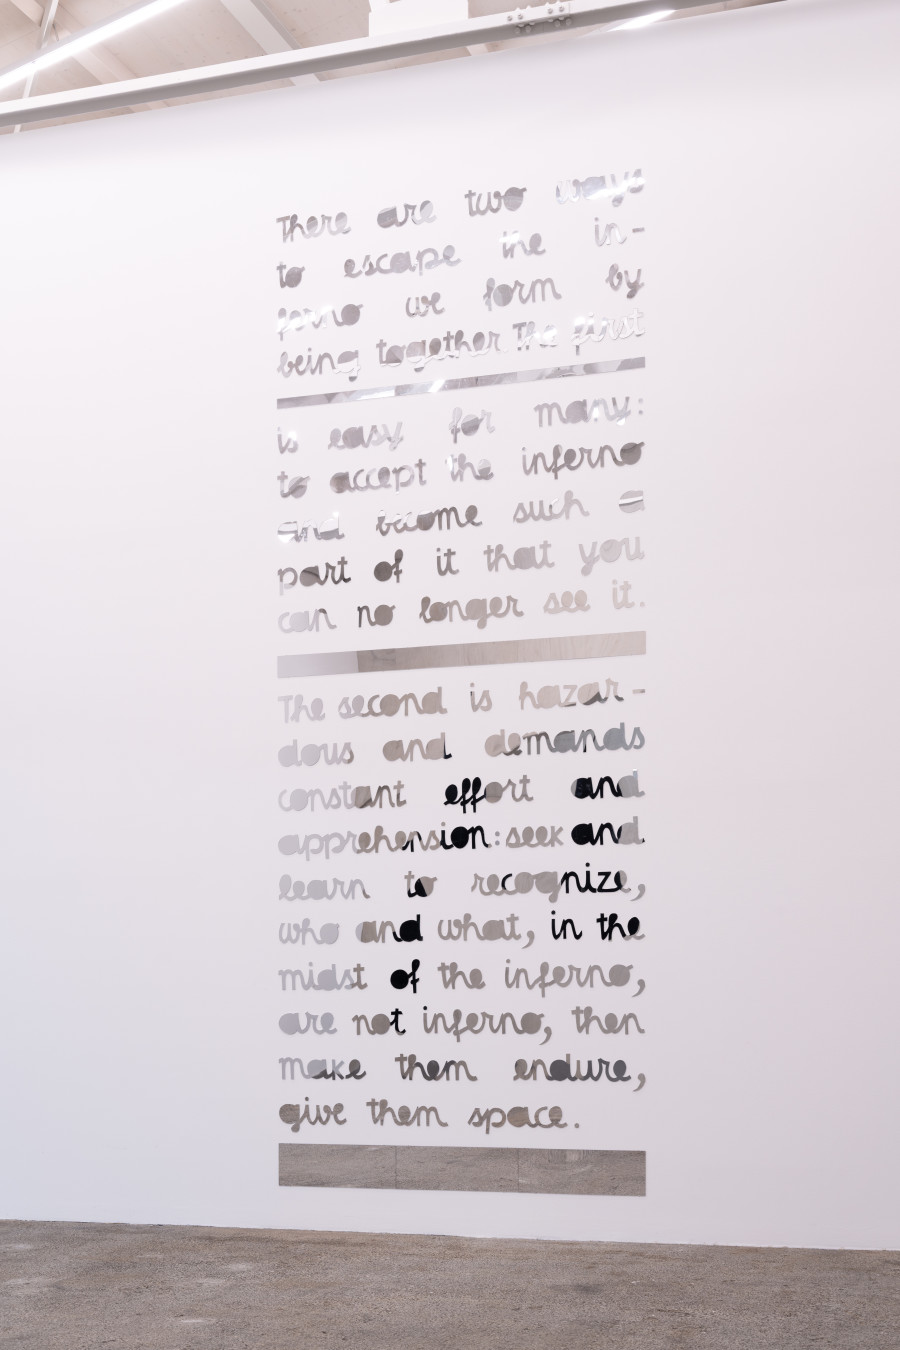 There are two ways
to escape the in-
ferno we form by
being together. The first
is easy for many:
to accept the inferno
and become such a
part of it that you
can no longer see it.
The second is hazar-
dous and demands
constant effort and
apprehension: seek and
learn to recognize,
who and what, in the
midst of the inferno,
are not inferno, then
make them endure,
give them space.